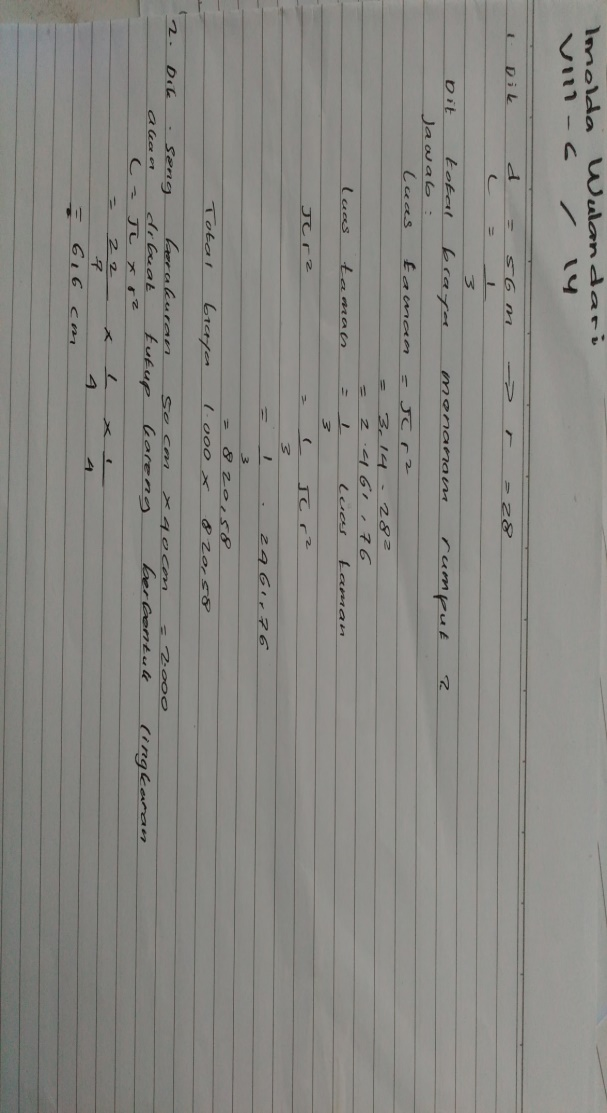 Imolda Wulandari
VIII - C / 14
1. Dik d = 56 m → r = 28
L = 1
3
Dit total biaya menanam rumput ?
Jawab :
Luas taman = πr²
= 3,14 . 28²
= 2.461,76
Luas taman = 1 Luas taman
3
πr² = 1 πr²
3
= 1 . 2461,76
3
= 820,58
Total biaya 1.000 x 820,58
2. Dik . Seng berukuran 50 cm x 40 cm = 2000
akan dibuat tutup kaleng berbentuk lingkaran
L = π x r²
= 22 x 1 x 1
7 4 4
= 616 cm